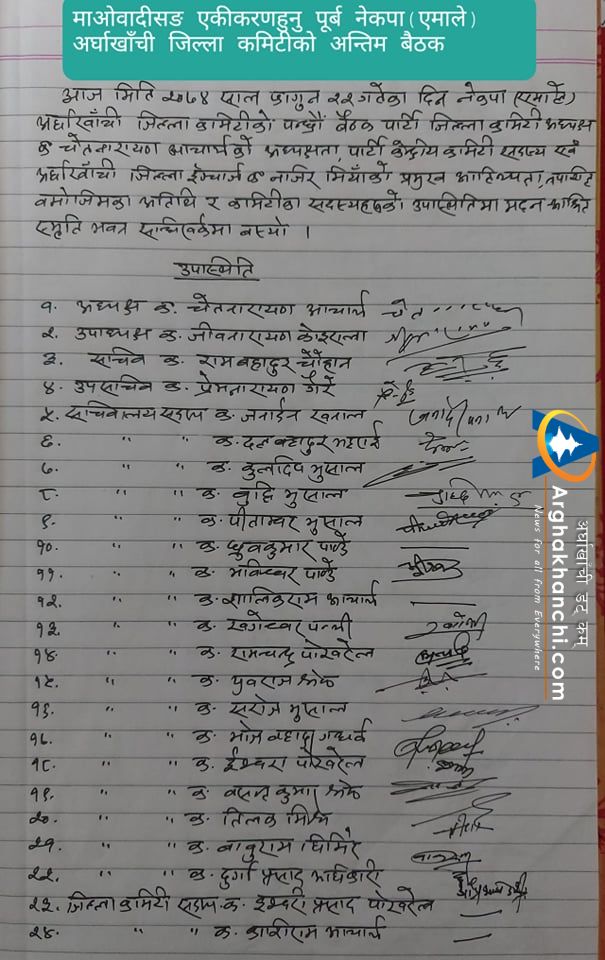 माओवादीसङ एकीकरणहुनु पूर्ब नेकपा(एमाले)
अर्घाखाँची जिल्ला कमिटीको अन्तिम बैठक
आज मिति २०७४ साल फागुन २२ गतेका दिन नेकपा (एमाले)
अर्घाखाँची जिल्ला कमिटीको पन्ध्रौं बैठक पार्टी जिल्ला कमिटी अध्यक्ष
क चेतनारायण आचार्यको अध्यक्षता, पार्टी केन्द्रीय कमिटी सदस्य एवं
अर्घाखाँची जिल्ला ईन्चार्ज क नाजिर मियाँको प्रमुख आतिथ्यता, तपशिल
बमोजिमका अतिथि र कमिटीका सदस्यहरुको उपस्थितिमा मदन आश्रित
स्मृति भवन सन्धिखर्कमा बस्यो ।
उपस्थिति
१. अध्यक्ष क. चेतनारायण आचार्य
२. उपाध्यक्ष क. जीवनारायण कोइराला
३. सचिव क. रामबहादुर चौहान
४. उपसचिव क. प्रेमनारायण गैरे
५. सचिवालय सदस्य क. जनार्दन खनाल
६. " " क. दलबहादुर भट्टराई
७. " " क. कुलदिप भुसाल
८. " " क. बुद्धि भुसाल
९. " " क. पीताम्बर भुसाल
१०. " " क. ध्रुवकुमार पाण्डे
११. " " क. भविश्वर पाण्डे
१२. " " क. शालिकराम आचार्य
१३. " " क. खगेश्वर पन्थी
१४. " " क. रामचन्द्र पोखरेल
१५. " " क. युवराज श्रेष्ठ
१६. " " क. सरोज भुसाल
१७. " " क. भोज बहादुर गन्धर्व
१८. " " क. ईश्वरा पोखरेल
१९. " " क. बसन्त कुमार श्रेष्ठ
२०. " " क. तिलक मिश्र
२१. " " क. बाबुराम घिमिरे
२२. " " क. दुर्गा प्रसाद अधिकारी
२३. जिल्ला कमिटि सदस्य क. ईश्वरी प्रसाद पोखरेल
२४. " " क. काशीराम आचार्य
Arghakhanchi.com
News for all from Everywhere
अर्घाखाँची डट कम्